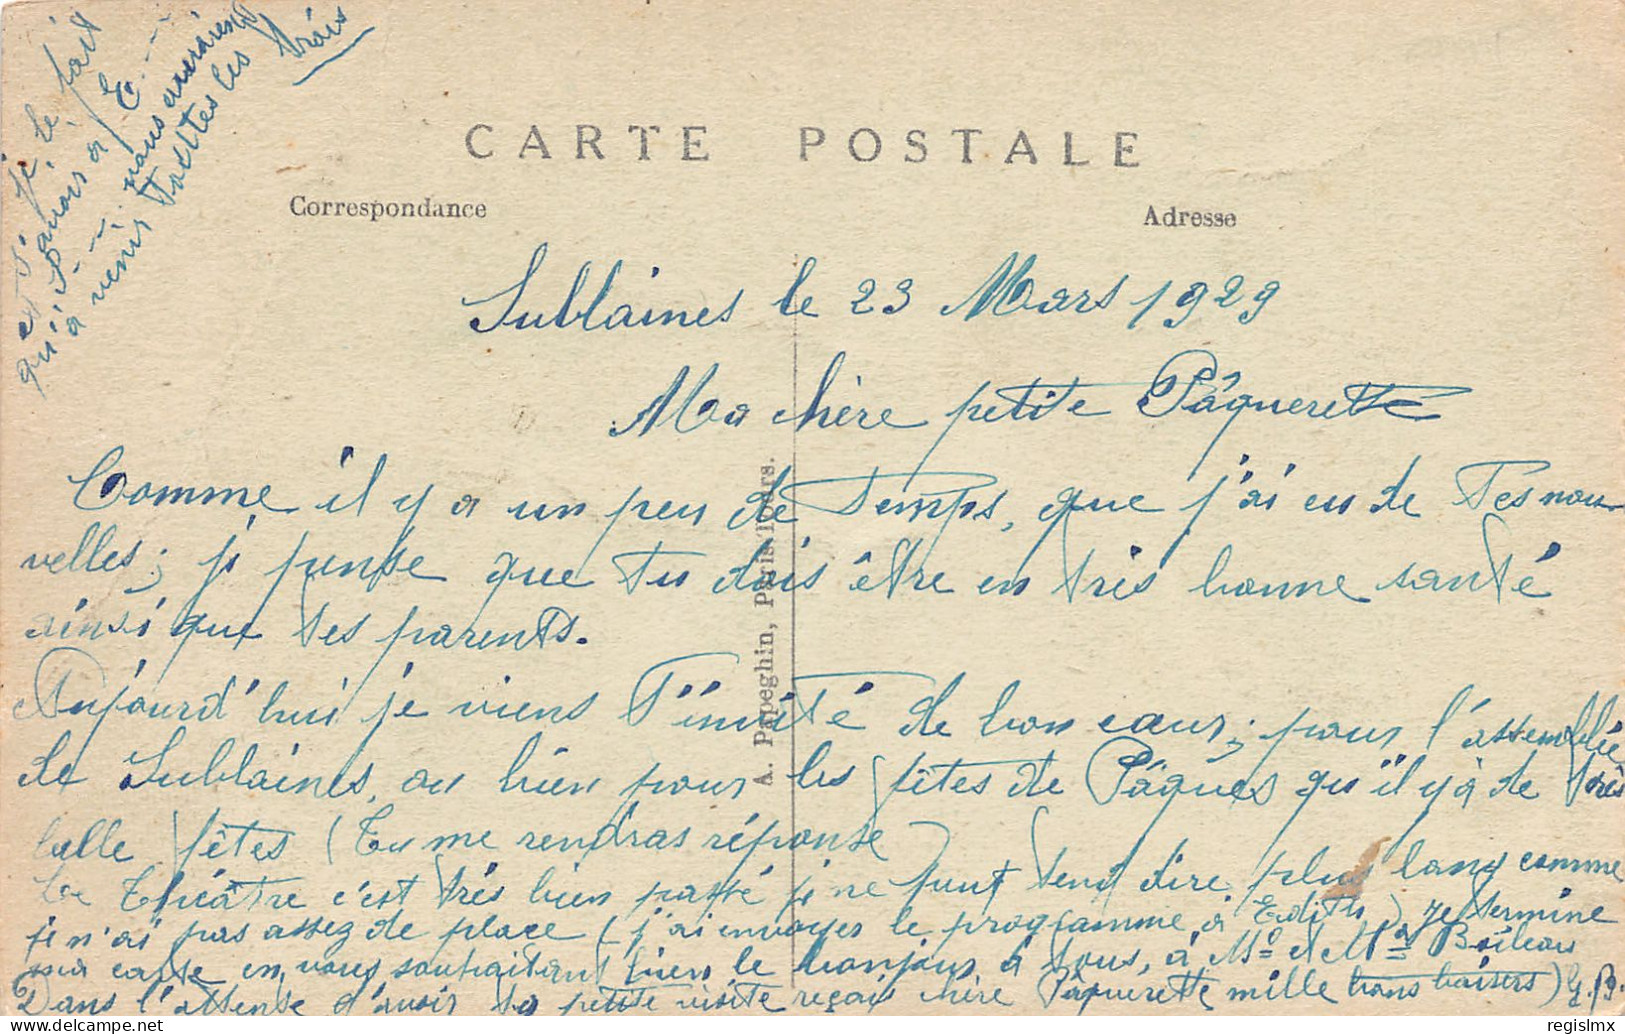 et s'
je le fait
savoir à E...
qu'ils... nous aurairent
à venir toutes les trois
CARTE POSTALE
Correspondance
Adresse
Sublaines le 23 Mars 1929
Ma chère petite Pâquerette
Comme il y a un peu de temps, que j'ai eu de tes nou
velles; je pense que tu dois être en très bonne santé
ainsi que tes parents.
Aujourd'hui je viens t'invité de bon cœur; pour l'assemblée
de Sublaines, ou bien pour les fêtes de Pâques qu'il y à de très
belle fêtes (Tu me rendras réponse)
Le Théâtre c'est très bien passé je ne peut tend dire plus long comme
je n'ai pas assez de place (j'ai envoyer le programme à Edith) Je termine
ma carte en vous souhaitant bien le bonjour à tous, à Mr et Mme Boileau
Dans l'attense d'avoir ta petite visite reçois chère Pâquerette mille bons baisers) G.B.
A. Papeghin, Paris-Tours.
delcampe.net
regislmx